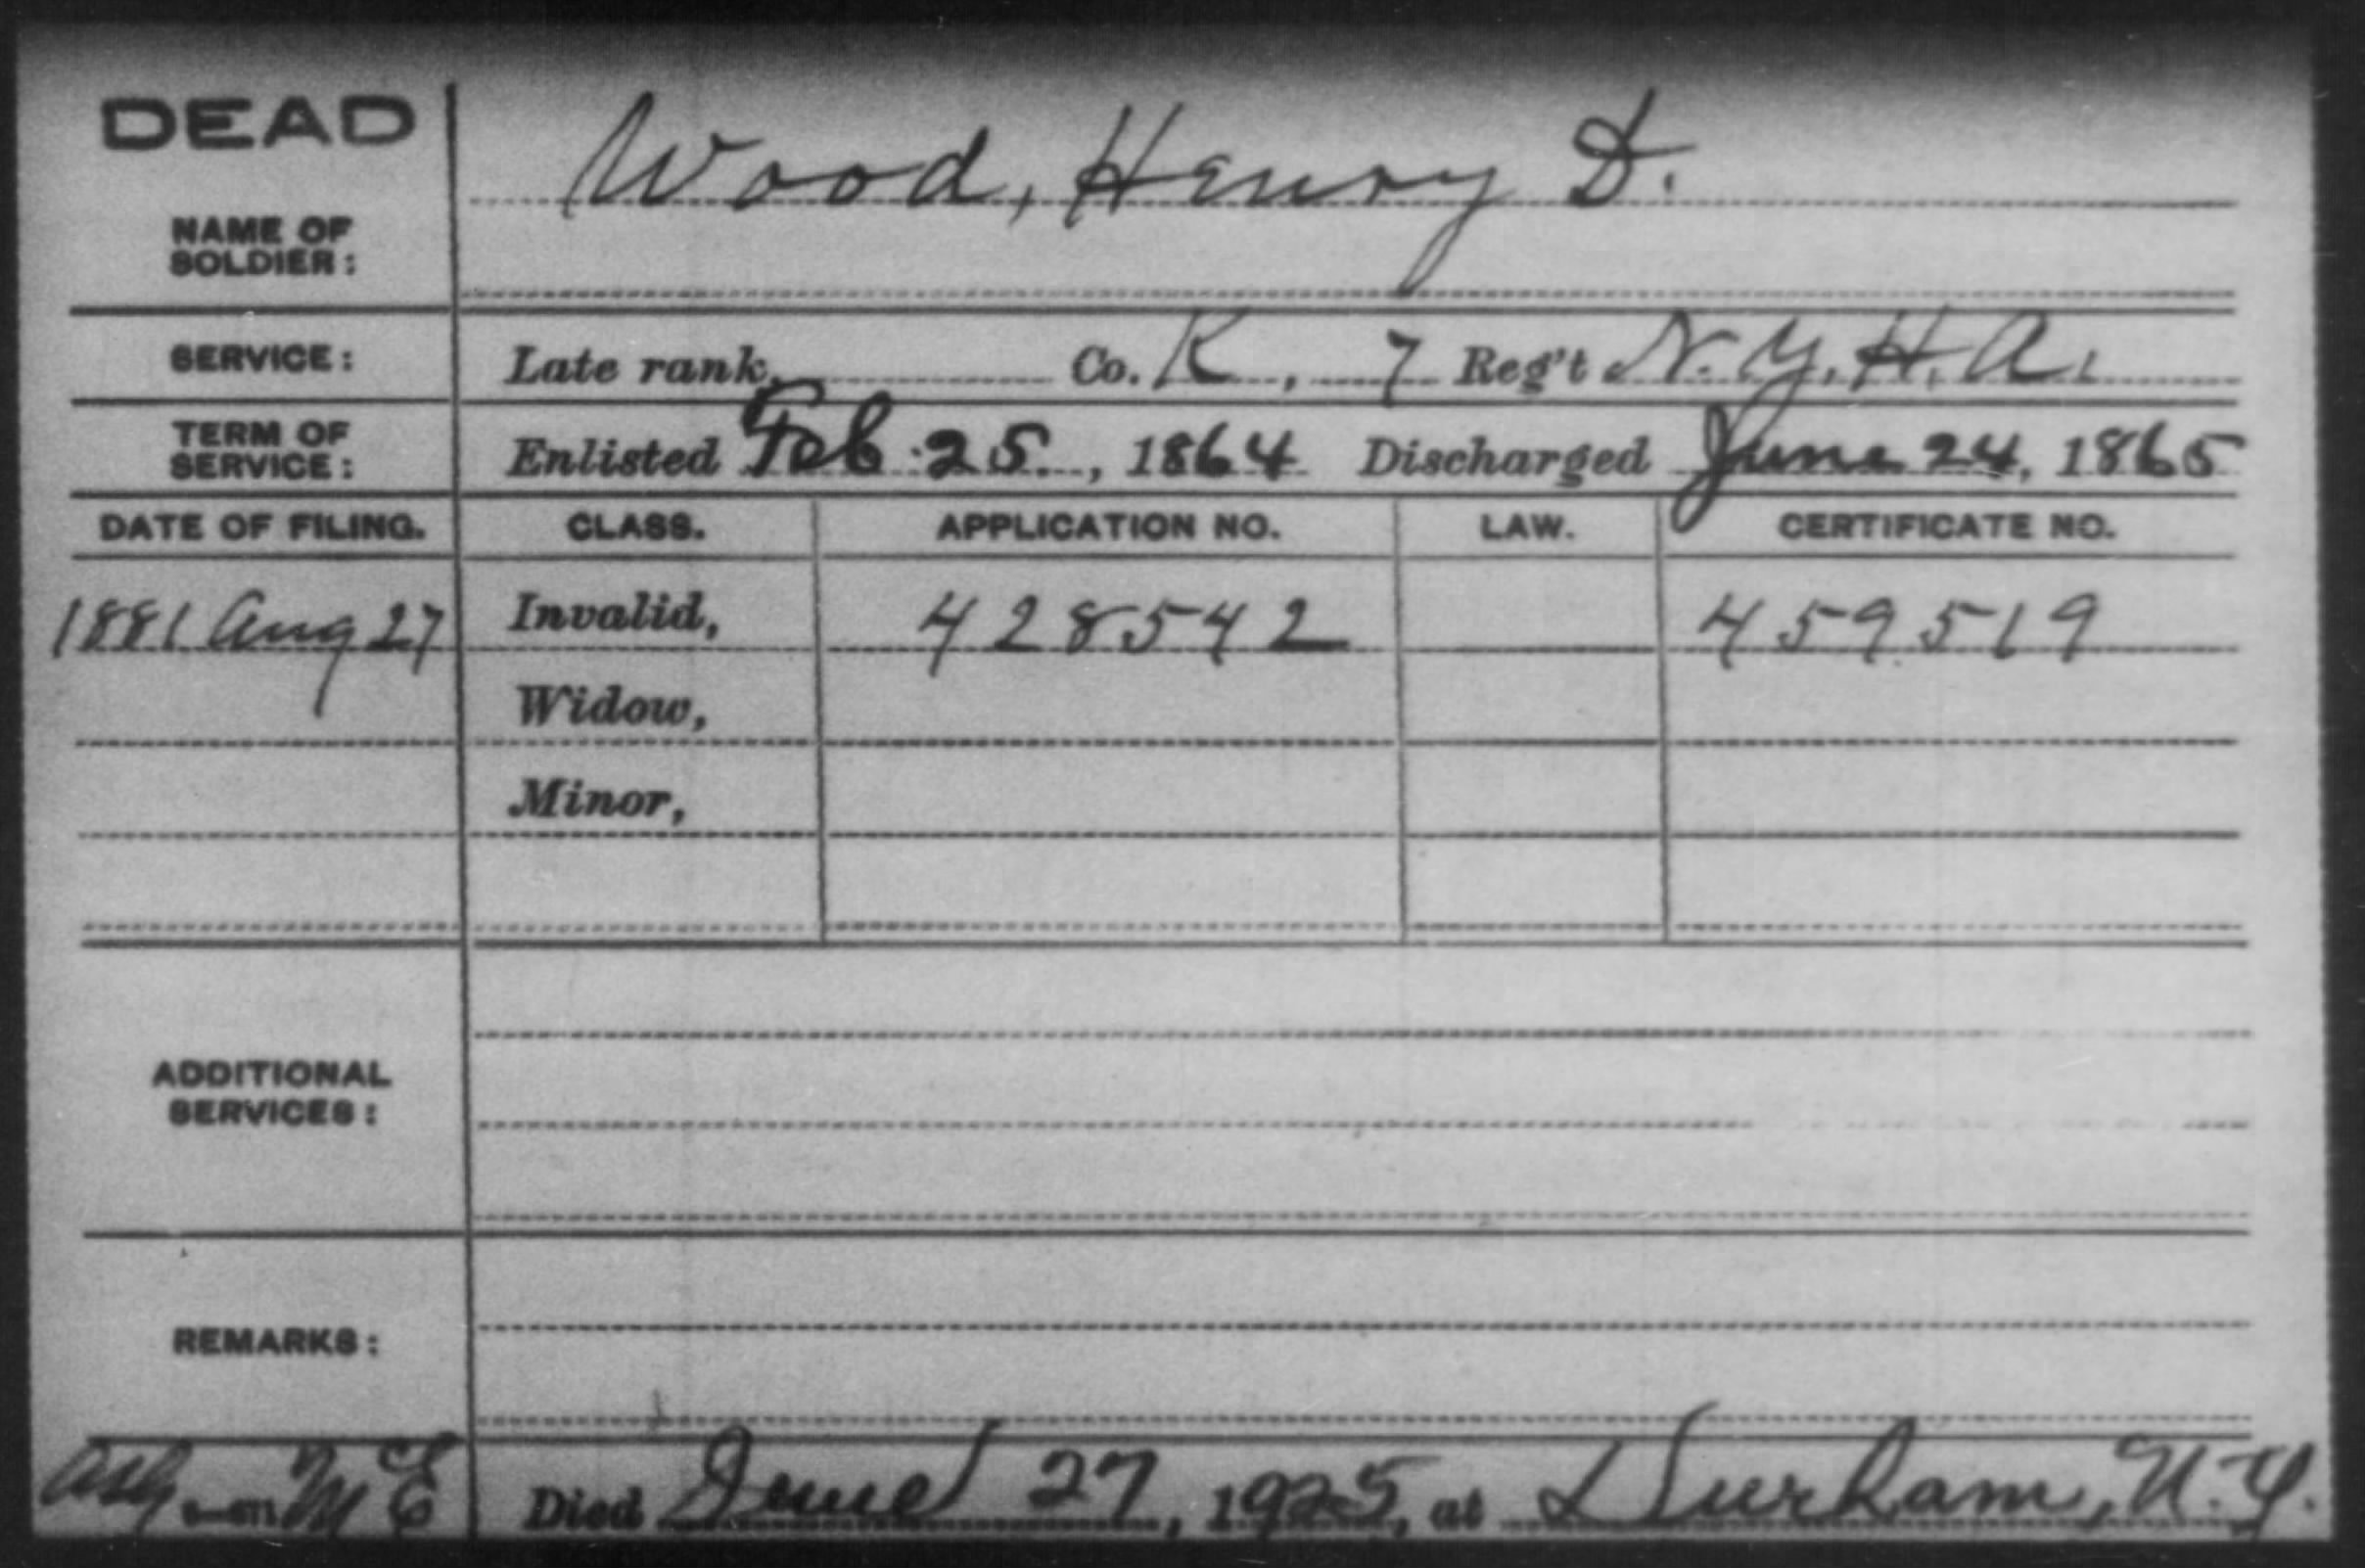 DEAD
Wood, Henry D.
NAME OF
SOLDIER:
SERVICE: Late rank, Co. K, 7 Reg't N.Y.H.A.
TERM OF
SERVICE: Enlisted Feb 25, 1864 Discharged June 24, 1865
DATE OF FILING. CLASS. APPLICATION NO. LAW. CERTIFICATE NO.
1881 Aug 27 Invalid, 428542 459519
Widow,
Minor,
ADDITIONAL
SERVICES:
REMARKS:
Died June 27, 1925, at Durham, N.Y.